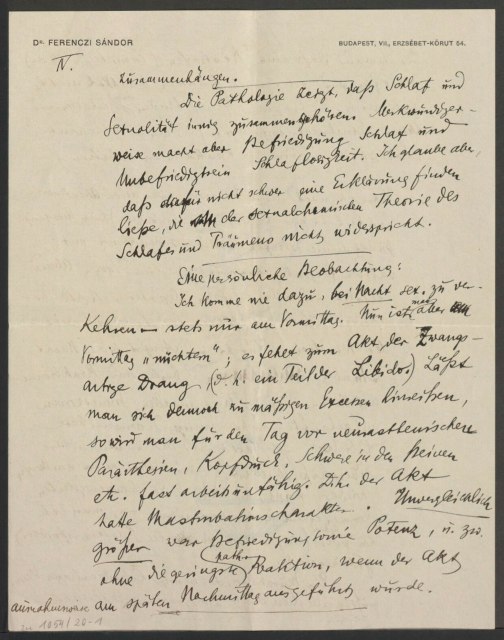 Dr. FERENCZI SÁNDOR
BUDAPEST, VII., ERZSÉBET-KÖRUT 54.
IV.
zusammenhängen.
Die Pathologie zeigt, daß Schlaf und
Sexualität innig zusammengehören. Merkwürdiger-
weise macht aber Befriedigung Schlaf und
Unbefriedigtsein Schlaflosigkeit. Ich glaube aber,
daß dafür nicht schwer eine Erklärung finden
ließe, die der sexualchemischen Theorie des
Schlafes und Träumens nicht widerspricht.
Eine persönliche Beobachtung:
Ich komme nie dazu, bei Nacht sex. zu ver-
kehren — stets nur am Vormittag. Nun ist man aber
Vormittag „nüchtern"; es fehlt zum Akt der Zwangs-
artige Drang, (d. h. ein Teil der Libido.) Läßt
man sich dennoch zu mäßigen Excessen hinreißen,
so wird man für den Tag vor neurasthenischen
Parästhesien, Kopfdruck, Schwere in den Beinen
etc. fast arbeitsunfähig. D.h. der Akt
hatte Masturbationscharakter. Unvergleichlich
größer war Befriedigung sowie Potenz, u. zw.
ohne die geringste path. Reaktion, wenn der Akt
ausnahmsweise am späten Nachmittag ausgeführt wurde.
1054/20-1